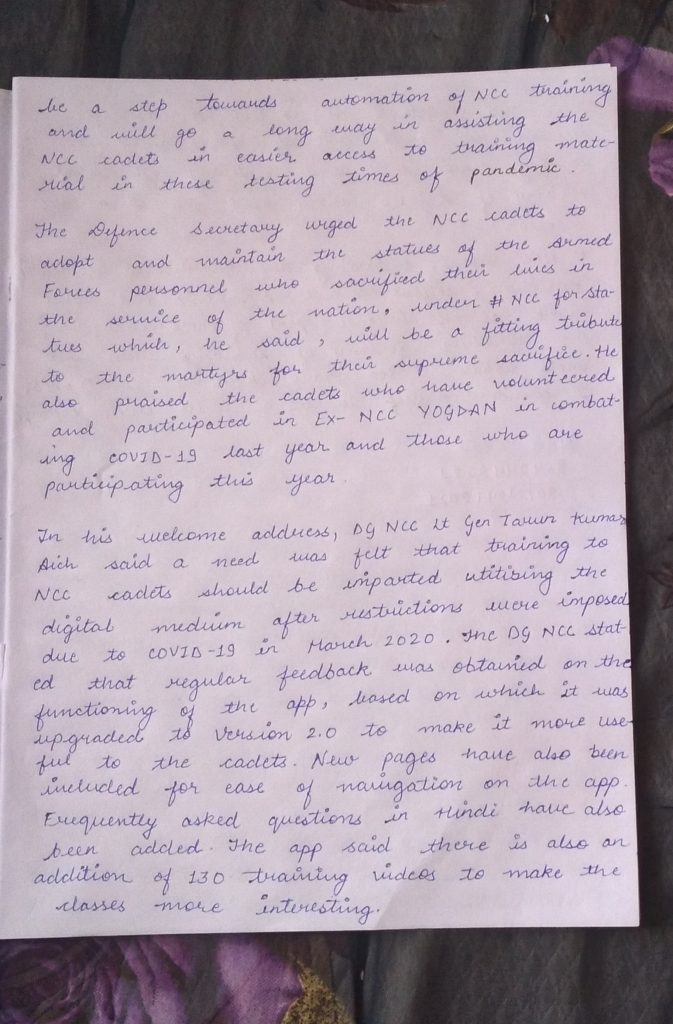 be a step towards automation of NCC training
and will go a long way in assisting the
NCC cadets in easier access to training mate-
rial in these testing times of pandemic.
The Defence Secretary urged the NCC cadets to
adopt and maintain the statues of the Armed
Forces personnel who sacrificed their lives in
the service of the nation, under # NCC for sta-
tues which, he said, will be a fitting tribute
to the martyrs for their supreme sacrifice. He
also praised the cadets who have volunteered
and participated in Ex- NCC YOGDAN in combat-
ing COVID-19 last year and those who are
participating this year.
In his welcome address, DG NCC Lt Gen Tarun Kumar
Aich said a need was felt that training to
NCC cadets should be imparted utilising the
digital medium after restrictions were imposed
due to COVID-19 in March 2020. The DG NCC stat-
ed that regular feedback was obtained on the
functioning of the app, based on which it was
upgraded to Version 2.0 to make it more use-
ful to the cadets. New pages have also been
included for ease of navigation on the app.
Frequently asked questions in Hindi have also
been added. The app said there is also an
addition of 130 training videos to make the
classes more interesting.